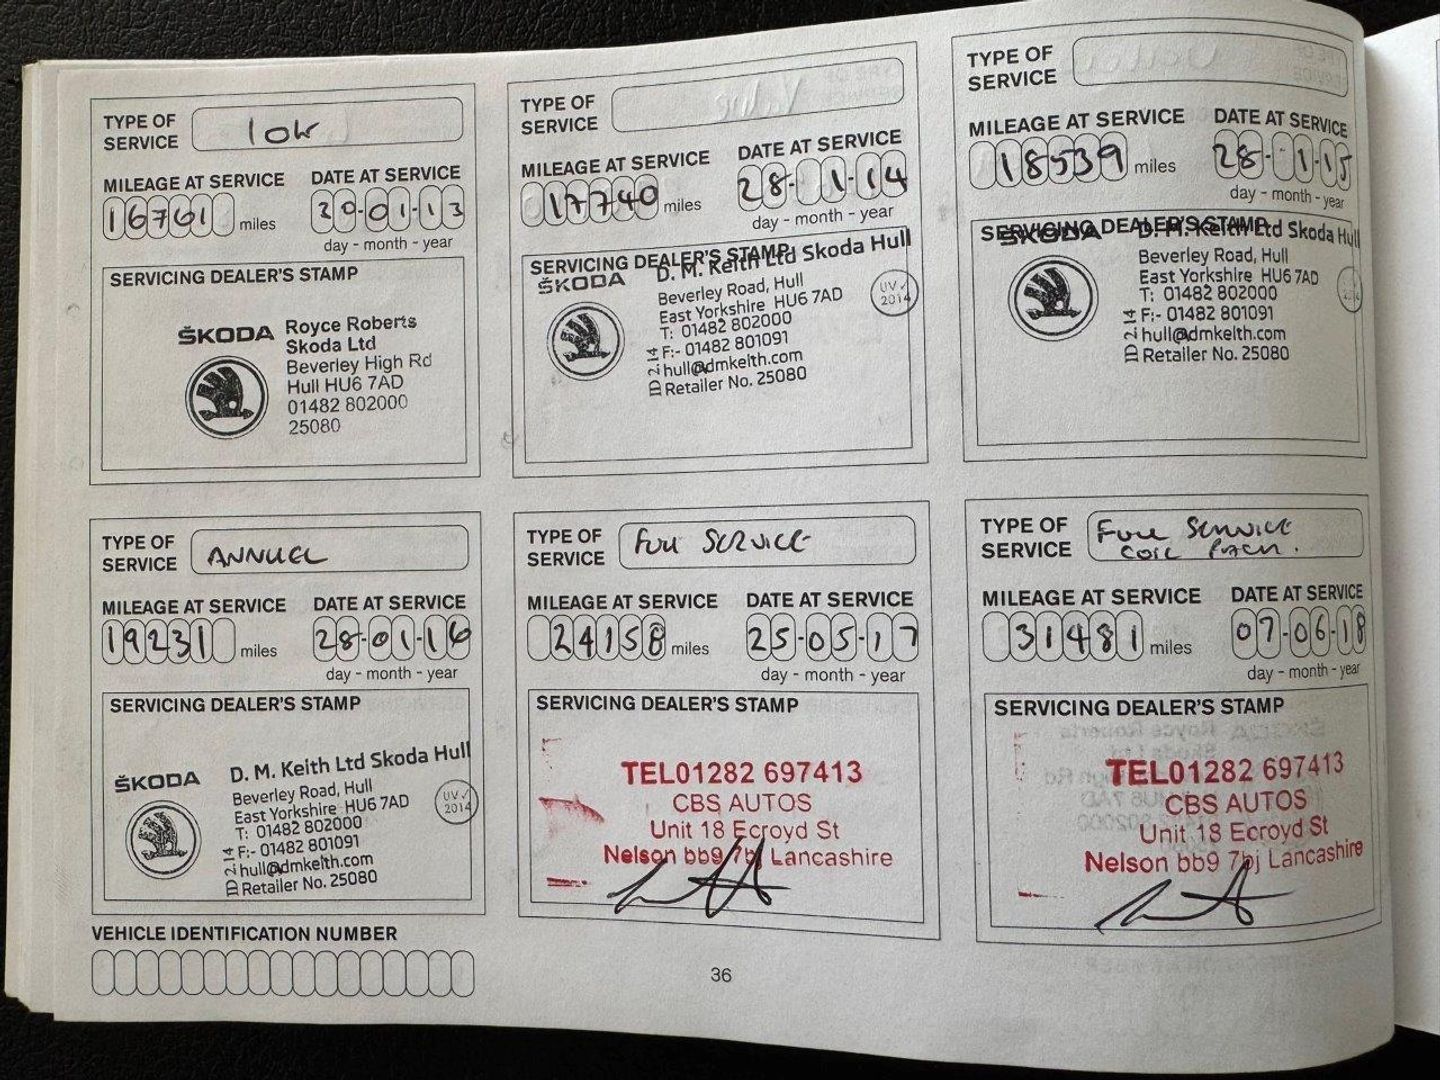 TYPE OF
SERVICE
low
MILEAGE AT SERVICE
16761 miles
DATE AT SERVICE
29-01-13
day - month - year
SERVICING DEALER'S STAMP
ŠKODA
Royce Roberts
Skoda Ltd
Beverley High Rd
Hull HU6 7AD
01482 802000
25080
TYPE OF
SERVICE
Value
MILEAGE AT SERVICE
17740 miles
DATE AT SERVICE
28-1-14
day - month - year
SERVICING DEALER'S STAMP
ŠKODA
D. M. Keith Ltd Skoda Hull
Beverley Road, Hull
East Yorkshire HU6 7AD
T: 01482 802000
F:- 01482 801091
hull@dmkeith.com
Retailer No. 25080
ID 2.14
UV✓
2014
TYPE OF
SERVICE
MILEAGE AT SERVICE
18539 miles
DATE AT SERVICE
28-1-15
day - month - year
SERVICING DEALER'S STAMP
ŠKODA
D. M. Keith Ltd Skoda Hull
Beverley Road, Hull
East Yorkshire HU6 7AD
T: 01482 802000
F:- 01482 801091
hull@dmkeith.com
Retailer No. 25080
ID 2.14
TYPE OF
SERVICE
ANNUEL
MILEAGE AT SERVICE
19231 miles
DATE AT SERVICE
28-01-16
day - month - year
SERVICING DEALER'S STAMP
ŠKODA
D. M. Keith Ltd Skoda Hull
Beverley Road, Hull
East Yorkshire HU6 7AD
T: 01482 802000
F:- 01482 801091
hull@dmkeith.com
Retailer No. 25080
ID 2.14
UV✓
2014
TYPE OF
SERVICE
Full SERVICE
MILEAGE AT SERVICE
24158 miles
DATE AT SERVICE
25-05-17
day - month - year
SERVICING DEALER'S STAMP
TEL01282 697413
CBS AUTOS
Unit 18 Ecroyd St
Nelson bb9 7bj Lancashire
TYPE OF
SERVICE
Full SERVICE
COIL PACK.
MILEAGE AT SERVICE
31481 miles
DATE AT SERVICE
07-06-18
day - month - year
SERVICING DEALER'S STAMP
TEL01282 697413
CBS AUTOS
Unit 18 Ecroyd St
Nelson bb9 7bj Lancashire
VEHICLE IDENTIFICATION NUMBER
36